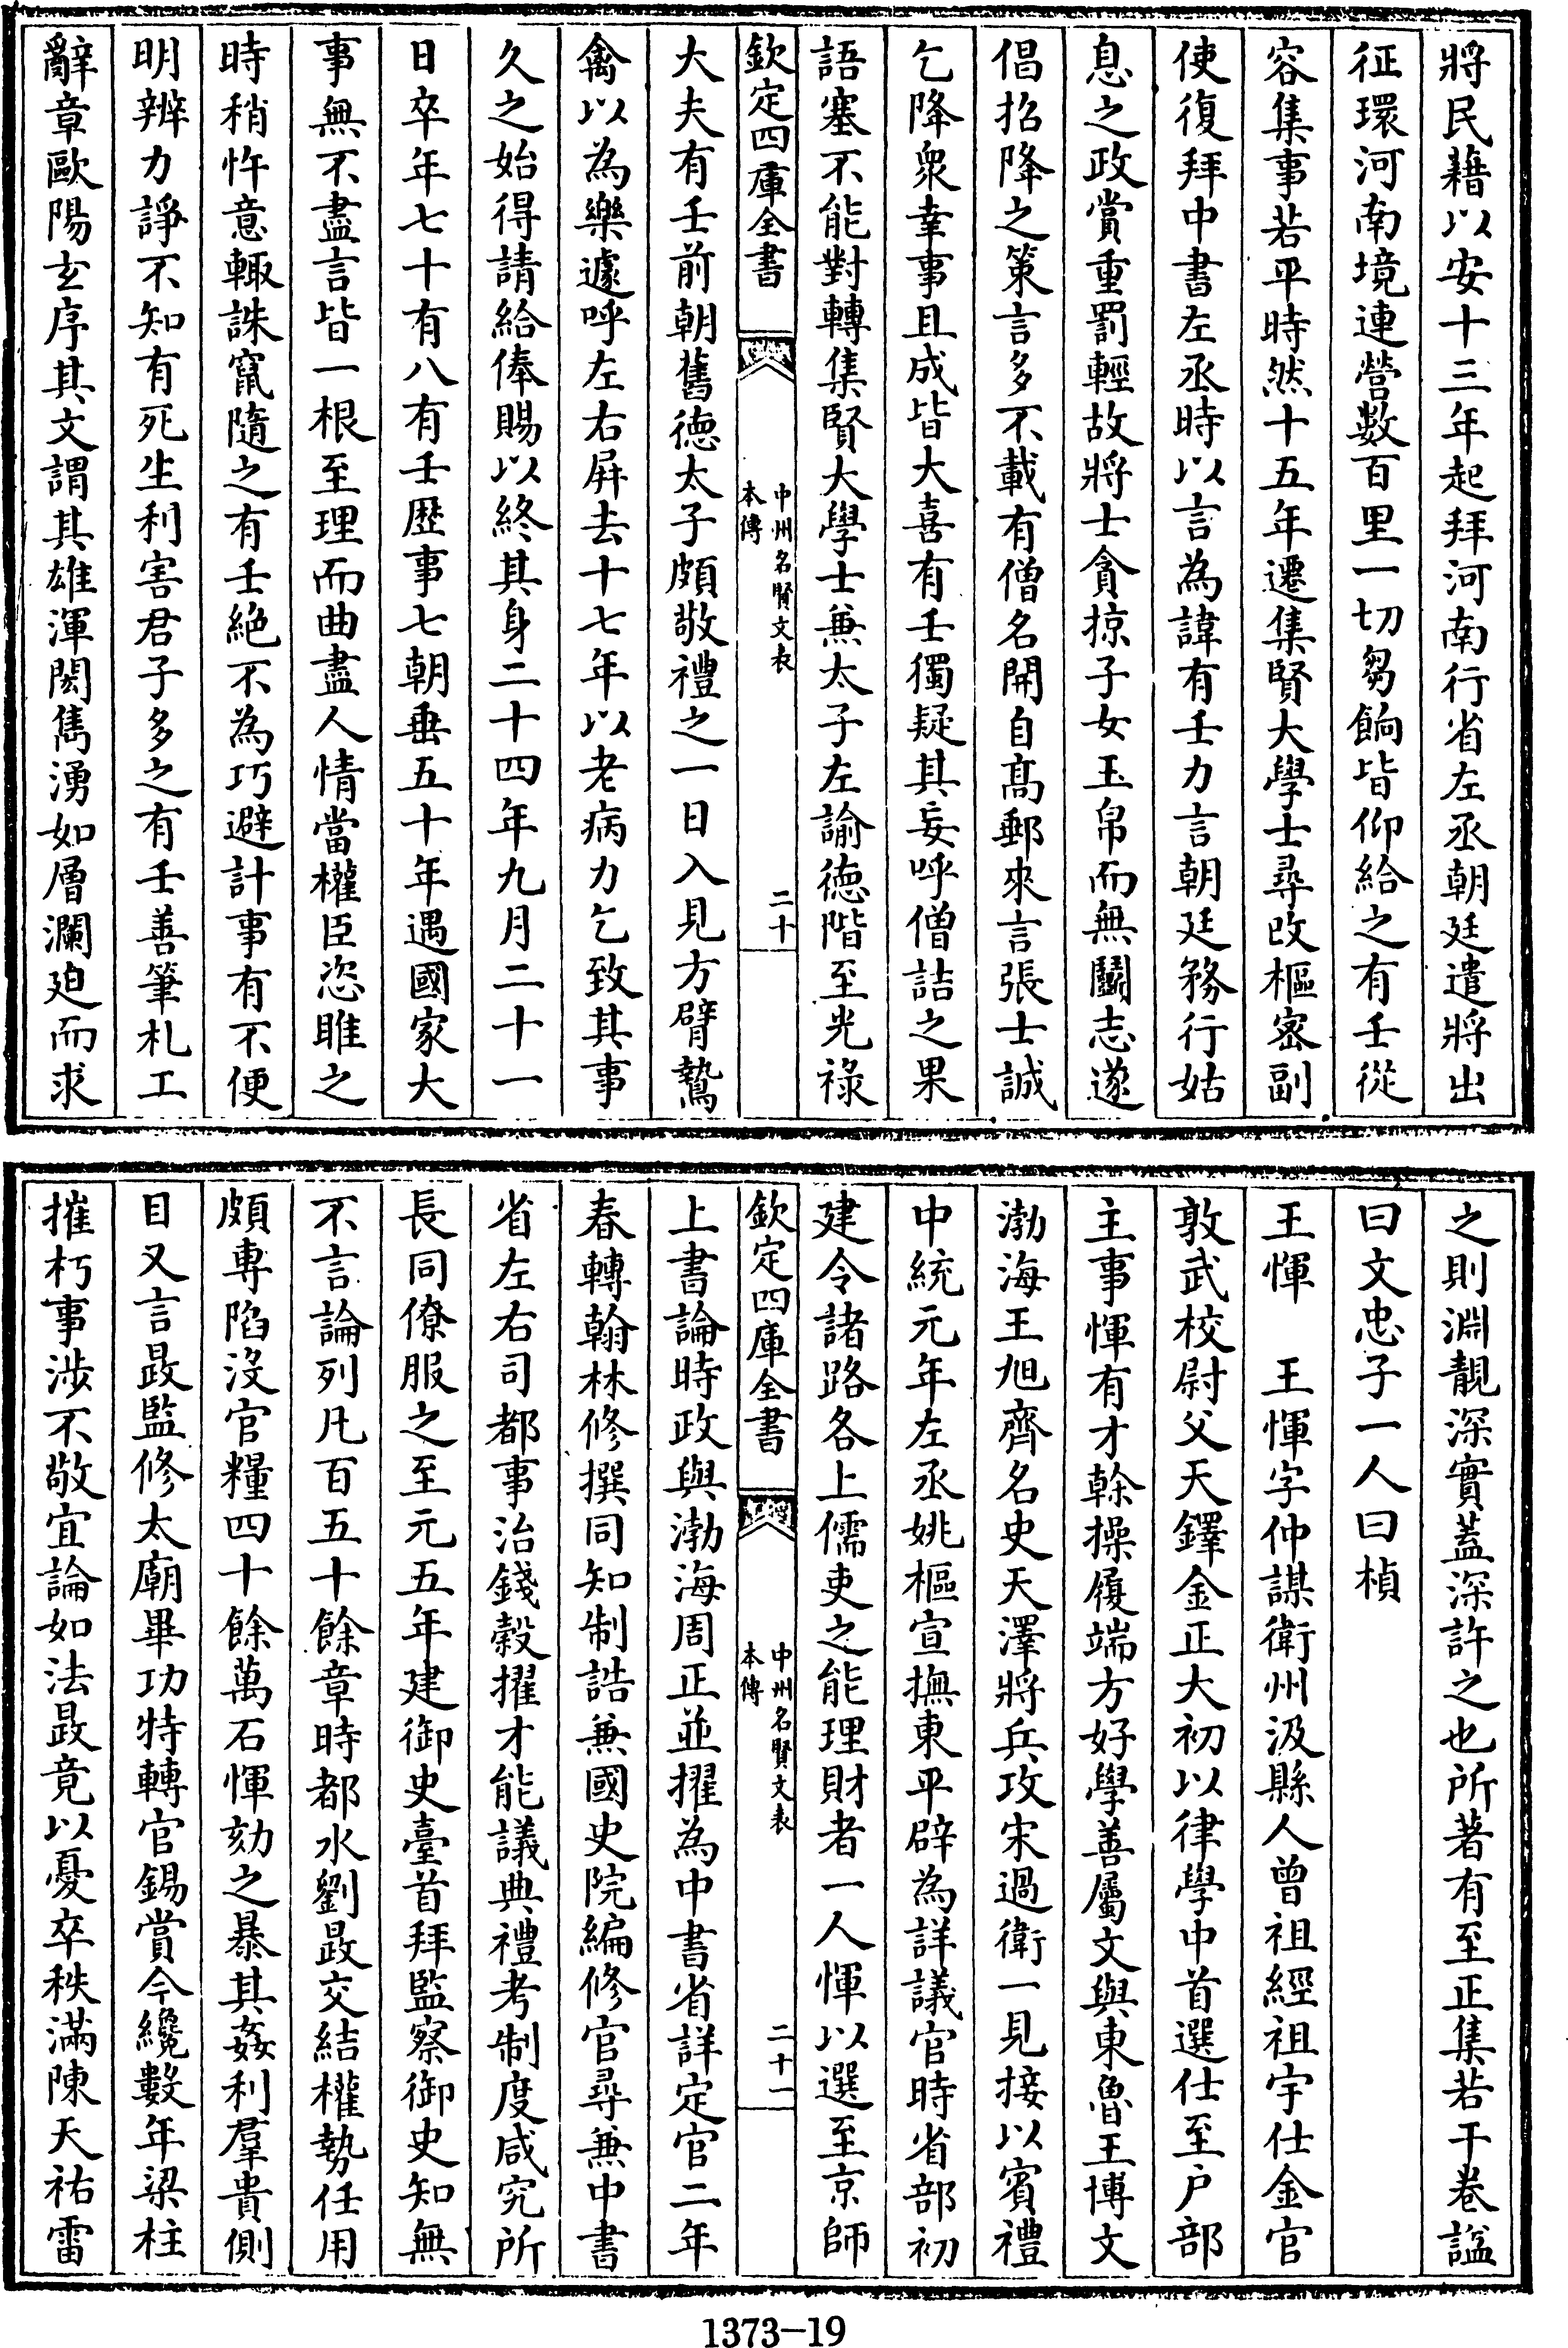 將民藉以安十三年起拜河南行省左丞朝廷遣將出
征環河南境連營數百里一切芻餉皆仰給之有壬從
容集事若平時然十五年遷集賢大學士尋改樞宻副
使復拜中書左丞時以言為諱有壬力言朝廷務行姑
息之政賞重罰輕故將士貪掠子女玉帛而無鬭志遂
倡招降之策言多不載有僧名開自髙郵來言張士誠
乞降衆幸事且成皆大喜有壬獨疑其妄呼僧詰之果
語塞不能對轉集賢大學士兼太子左諭徳階至光祿
欽定四庫全書
中州名賢文表
本傳
二十
大夫有壬前朝舊徳太子頗敬禮之一日入見方臂鷙
禽以為樂遽呼左右屏去十七年以老病力乞致其事
久之始得請給俸賜以終其身二十四年九月二十一
日卒年七十有八有壬歴事七朝垂五十年遇國家大
事無不盡言皆一根至理而曲盡人情當權臣恣睢之
時稍忤意輙誅竄隨之有壬絶不為巧避計事有不便
明辨力諍不知有死生利害君子多之有壬善筆札工
辭章歐陽玄序其文謂其雄渾閎雋湧如層瀾廹而求
之則淵靚深實蓋深許之也所著有至正集若干卷諡
曰文忠子一人曰楨
王惲　王惲字仲謀衛州汲縣人曾祖經祖宇仕金官
敦武校尉父天鐸金正大初以律學中首選仕至户部
主事惲有才幹操履端方好學善屬文與東魯王博文
渤海王旭齊名史天澤將兵攻宋過衛一見接以賓禮
中統元年左丞姚樞宣撫東平辟為詳議官時省部初
建令諸路各上儒吏之能理財者一人惲以選至京師
欽定四庫全書
中州名賢文表
本傳
二十一
上書論時政與渤海周正並擢為中書省詳定官二年
春轉翰林修撰同知制誥兼國史院編修官尋兼中書
省左右司都事治錢榖擢才能議典禮考制度咸究所
長同僚服之至元五年建御史臺首拜監察御史知無
不言論列凡百五十餘章時都水劉晸交結權勢任用
頗專陷沒官糧四十餘萬石惲劾之暴其姦利羣貴側
目又言晸監修太廟畢功特轉官錫賞今纔數年梁柱
摧朽事涉不敬宜論如法晸竟以憂卒秩滿陳天祐雷
1373—19